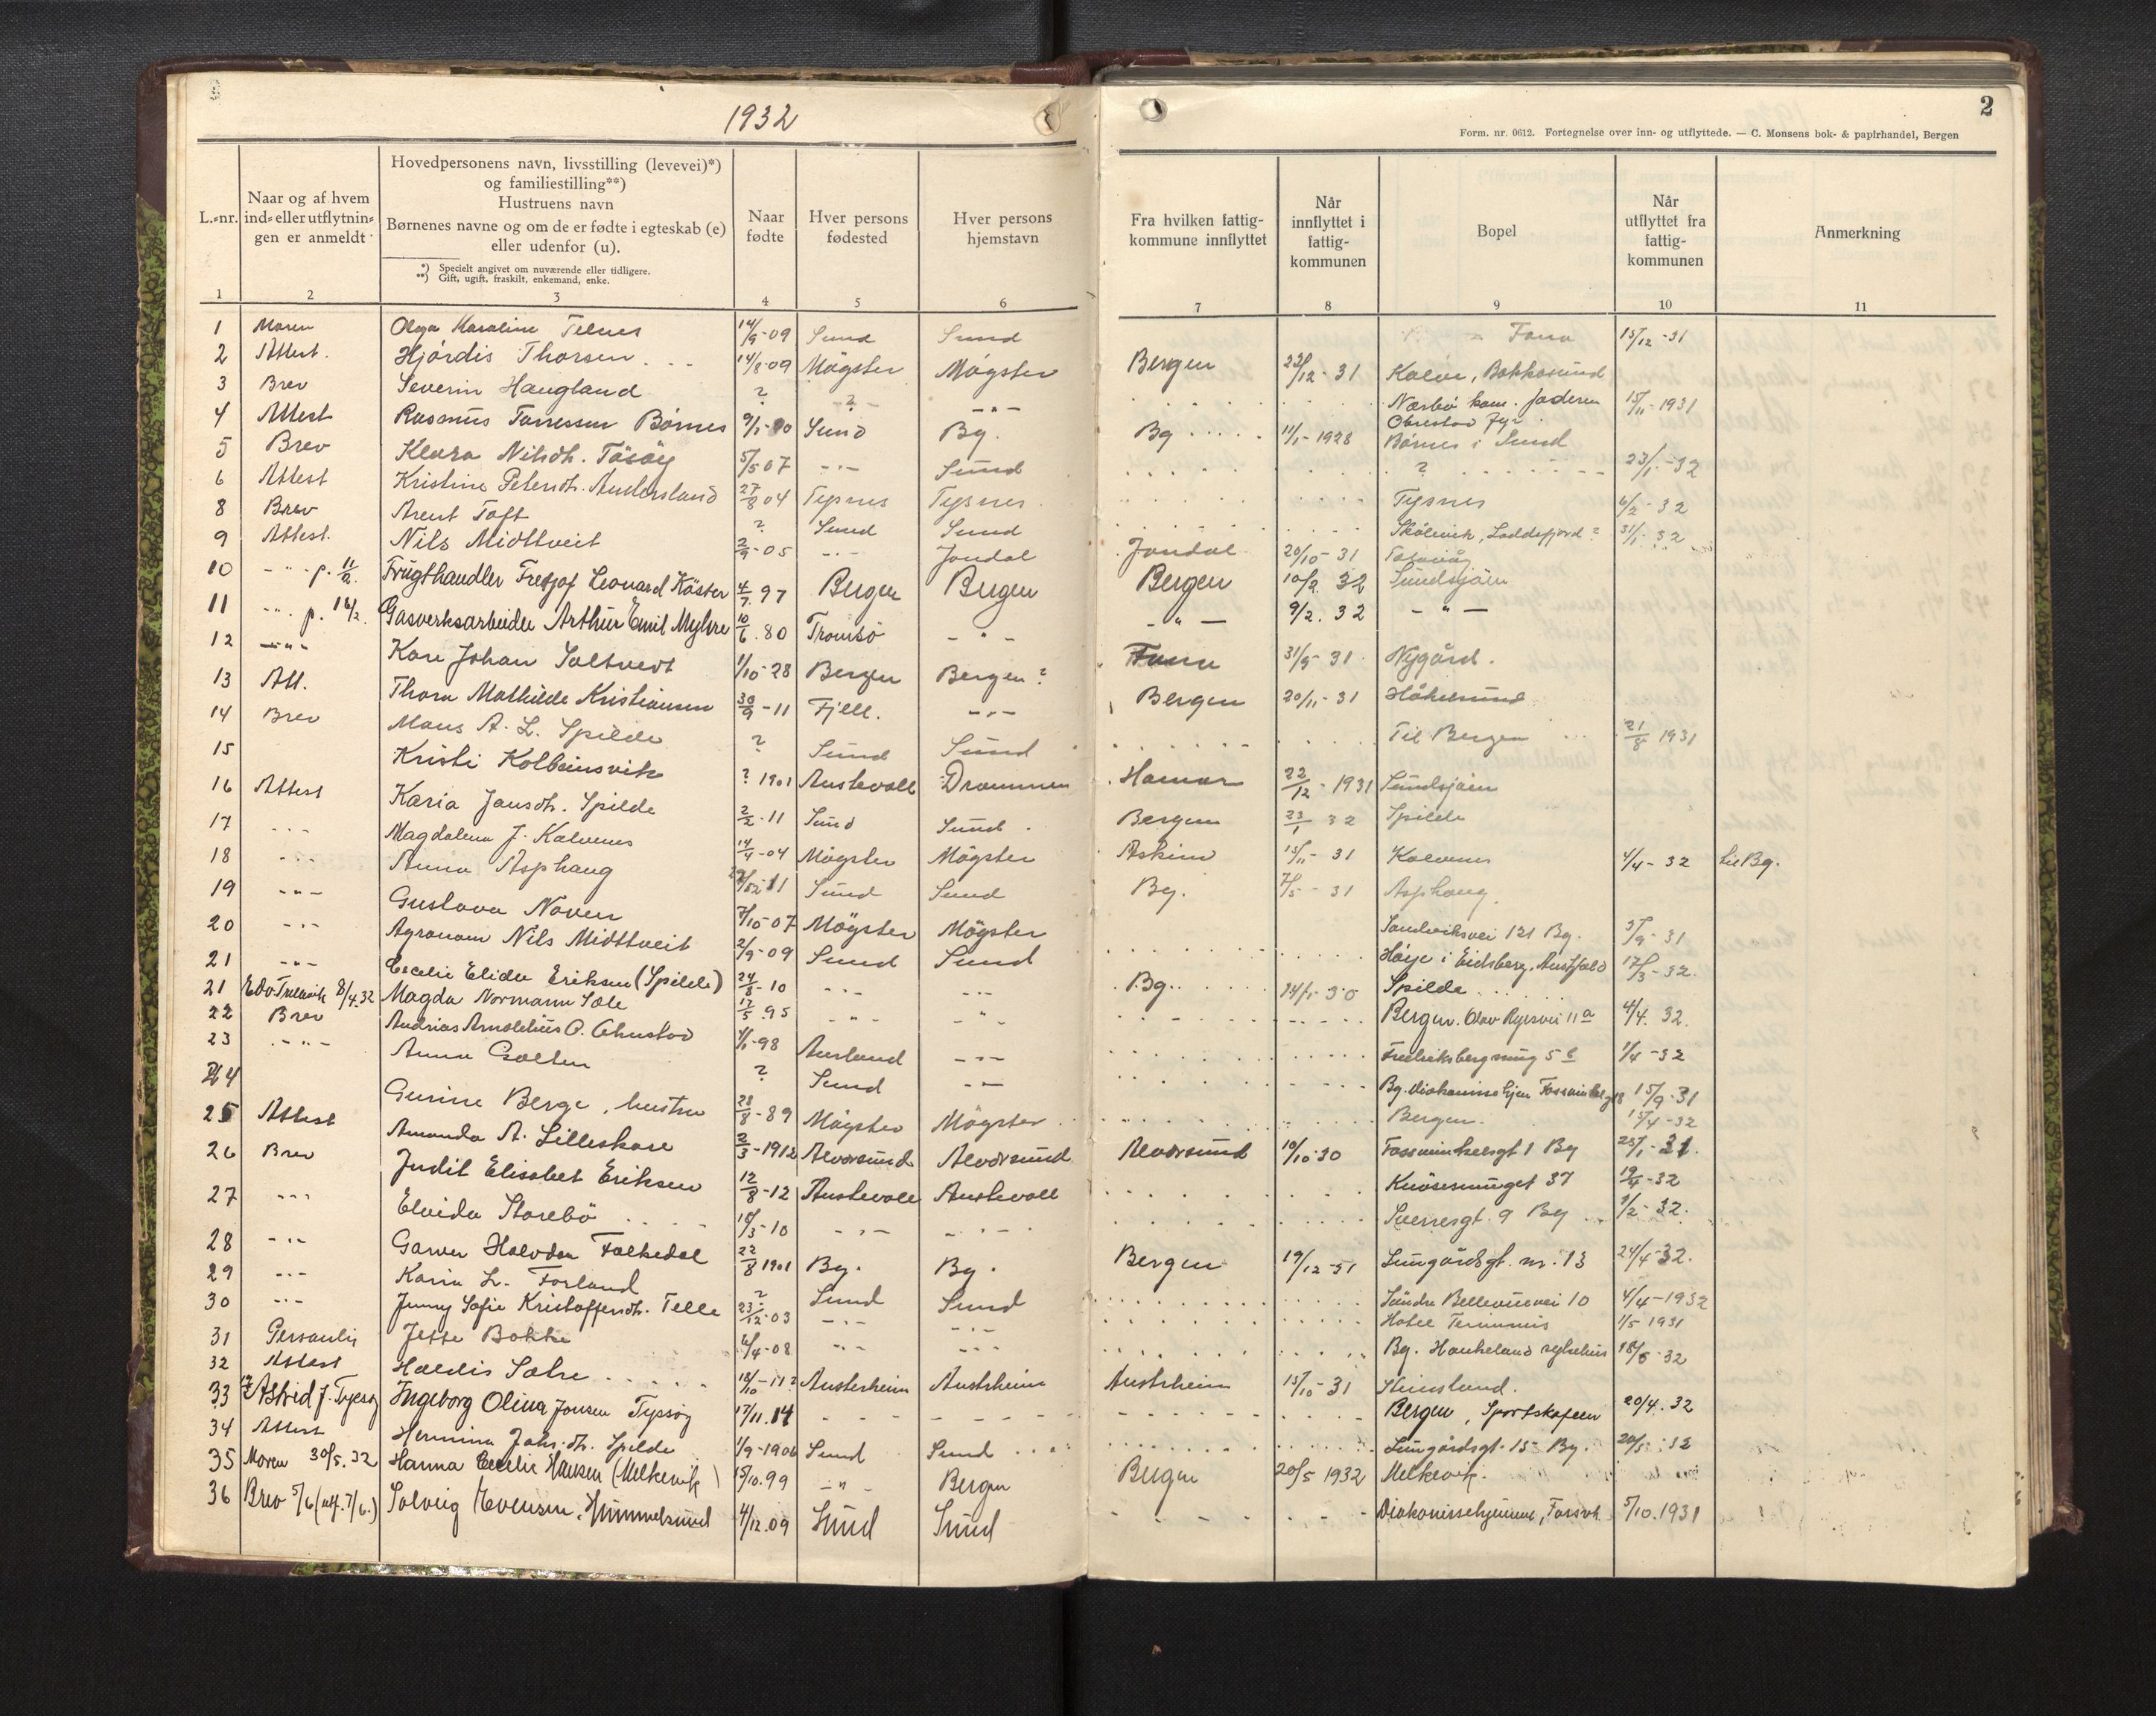 1932
2
Form. nr. 0612. Fortegnelse over inn- og utflyttede. — C. Monsens bok- & papirhandel, Bergen
L.-nr.
Naar og af hvem ind- eller utflytningen er anmeldt
Hovedpersonens navn, livsstilling (levevei)*) og familiestilling**)
Hustruens navn
Børnenes navne og om de er fødte i egteskab (e) eller udenfor (u).
*) Specielt angivet om nuværende eller tidligere.
**) Gift, ugift, fraskilt, enkemand, enke.
Naar fødte
Hver persons fødested
Hver persons hjemstavn
Fra hvilken fattigkommune innflyttet
Når innflyttet i fattigkommunen
Bopel
Når utflyttet fra fattigkommunen
Anmerkning
1 2 3 4 5 6 7 8 9 10 11
1 Moren Olga Karoline Telnes 14/9-09 Sund Sund Fana 15/12-31
2 Attest. Hjördis Thorsen 14/8-09 Mögster Mögster Bergen 22/12-31 Bakkasund
3 Brev Severin Haugland ? -?- -"- Nærbø Jæderen Obrestad Fyr 15/11-1931
4 Attest Rasmus Börnes Sund Bg. Bg 11/1-1928 Börnes i Sund
5 Brev Klara Nilsdt. Tösöy 5/5 07 -"- Sund ? 23/1-32
6 Attest Kristine Petersdt. Andersland 27/8 04 Tysnes Tysnes Tysnes 6/2-32
8 Brev Arent Toft ? Sund Sund Skålevik, Loddefjord? 31/1-32
9 Attest. Nils Midttveit 2/9-05 -"- Jondal Jondal 20/10-31
10 -"- p. 11/2. Frugthandler Leonard Köster 4/7. 97 Bergen Bergen Bergen 10/2. 32 Sundsjöen
11 -"- p. 16/2. Gasverksarbeider Arthur Emil Myhre 10/6. 80 Tromsö -"- -"- 9/2. 32 -"-
12 -"- Kåre Johan Saltvedt 1/10-28 Bergen Bergen? Fana 31/9-31 Nygård.
13 Att. Thora Mathilde Kristiansen 30/9-11 Fjell. -"- Bergen 20/11-31 Håkesund
14 Brev Mons A. L. Spilde ? Sund Sund Til Bergen 21/8 1931
15 Kristi Kolbeinsvik ? 1901 Austevoll Drammen Hamar 22/12-1931 Sundsjöen
16 Attest Karia Jansdt. Spilde 2/2-11 Sund Sund Bergen 23/1 32 Spilde
17 -"- Magdalena J. Kalvenes 14/4-04 Mögster Mögster Askim 15/11-31 Kalvenes 4/4-32 til Bg.
18 -"- Anna Asphaug Sund Sund Bg. 7/5-31 Asphaug
19 -"- Gustava Naven 7/10-07 Mögster Mögster Sandviksvei 121 Bg. 5/9-31
20 -"- Agronom Nils Midttveit 2/9-09 Sund Sund Höije i Eidsberg, Østfold 17/3-32.
21 -"- Cecelie Elida Eriksen (Spilde) 24/8-10 -"- -"- Bg. 14/1-30 Spilde
21 8/4.32 Magda Normann Sæle 12/5. 95 -"- -"- Bergen. Olav Ryesvei 11a 4/4. 32.
22 Brev Andrias 4/1-98 Aurland -"- Fredriksbergsmug 5 1/4-32
23 -"- Anna Golten ? Sund -"- 15/9-31
24 Gurine Berge, hustru 28/8-89 Mögster Mögster Bergen 15/4-32
25 Attest Amanda A. Lilleskare 2/3-1912 Alversund Alversund Alversund 10/10-30 Fosswinkelsgt 1 Bg 23/1-31.
26 Brev Judit Elisabet Eriksen 12/8-12 Austevoll Austevoll Knösesmuget 37 19/4-32
27 -"- Elvida Storebö 18/3-10 -"- -"- Sverresgt. 9 Bg 9/2-32.
28 -"- Halvdan Folkedal 22/8 1901 Bg. Bg. Bergen 19/12-31 Lungårdsgt. nr. 13 24/4-32.
29 -"- Karin L. Forland ? Sund Sund Söndre Bellevuevei 10 4/4-1932
30 -"- Jenny Sofie Kristoffersdt. Telle 23/12-03 -"- -"- Hotel Terminus 1/5 1931
31 Personlig Jette Bakke 6/4-08 -"- -"- Bg. Haukeland sykehus 18/5-32
32 Attest Haldis Sætre 18/10-11? Austerheim Austrheim Austrheim 15/10-31 Steinsland.
33 Astrid J. Tyssøy Ingeborg Olina Jonsen Tyssøy 17/11. 14 Bergen, Sportskafeen 20/4. 32
34 Attest Hermina Johs.dt. Spilde 1/9-1906 Sund Sund Lungårdsgt. 15 Bg. 20/5-32
35 Moren 30/5. 32 Hanna Cecelie Hansen (Melkevik) 15/10. 99 -"- Bergen Bergen 20/5 1932 Melkevik.
36 Brev 5/6 (utf. 7/6.) Solveig Evensen, Hummelsund 4/12.09 Sund Sund Diakonissehjemmet, Fossvk. 5/10. 1931